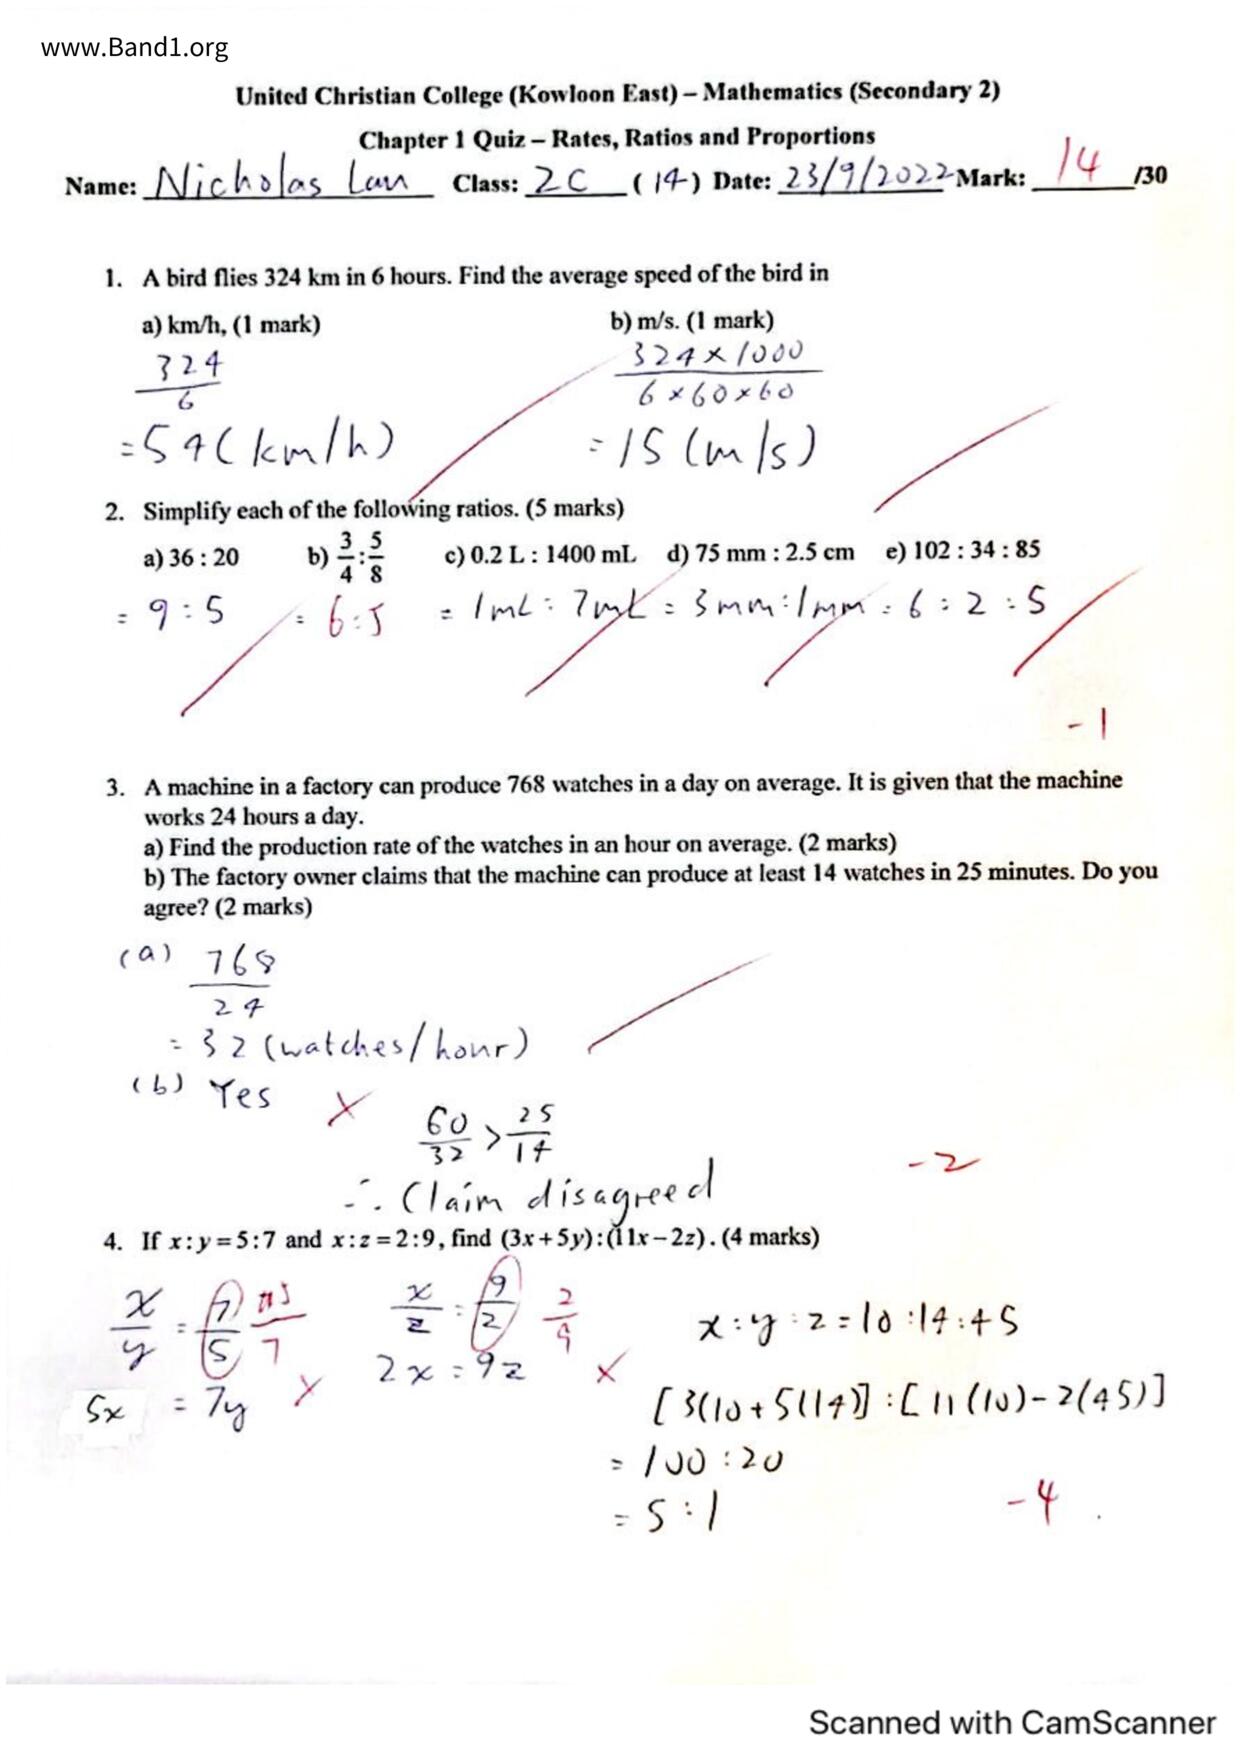 www.Band1.org
United Christian College (Kowloon East) – Mathematics (Secondary 2)
Chapter 1 Quiz – Rates, Ratios and Proportions
Name: Nicholas Lau Class: 2C (14) Date: 23/9/2022 Mark: 14 /30
1. A bird flies 324 km in 6 hours. Find the average speed of the bird in
a) km/h, (1 mark) b) m/s. (1 mark)
324/6 324×1000/6×60×60
=54(km/h) =15(m/s)
2. Simplify each of the following ratios. (5 marks)
a) 36 : 20 b) 3/4:5/8 c) 0.2 L : 1400 mL d) 75 mm : 2.5 cm e) 102 : 34 : 85
= 9:5 = 6:5 = 1mL : 7mL = 3mm:1mm = 6:2:5
-1
3. A machine in a factory can produce 768 watches in a day on average. It is given that the machine
works 24 hours a day.
a) Find the production rate of the watches in an hour on average. (2 marks)
b) The factory owner claims that the machine can produce at least 14 watches in 25 minutes. Do you
agree? (2 marks)
(a) 768/24
= 32 (watches/hour)
(b) Yes
60/32 > 25/14
-2
∴ Claim disagreed
4. If x:y=5:7 and x:z=2:9, find (3x+5y):(11x−2z). (4 marks)
x/y = 7/5 5/7 x/z = 9/2 2/9 x:y:z=10:14:45
5x = 7y 2x = 9z [3(10+5(14)]:[11(10)-2(45)]
= 100:20
= 5:1
-4
Scanned with CamScanner